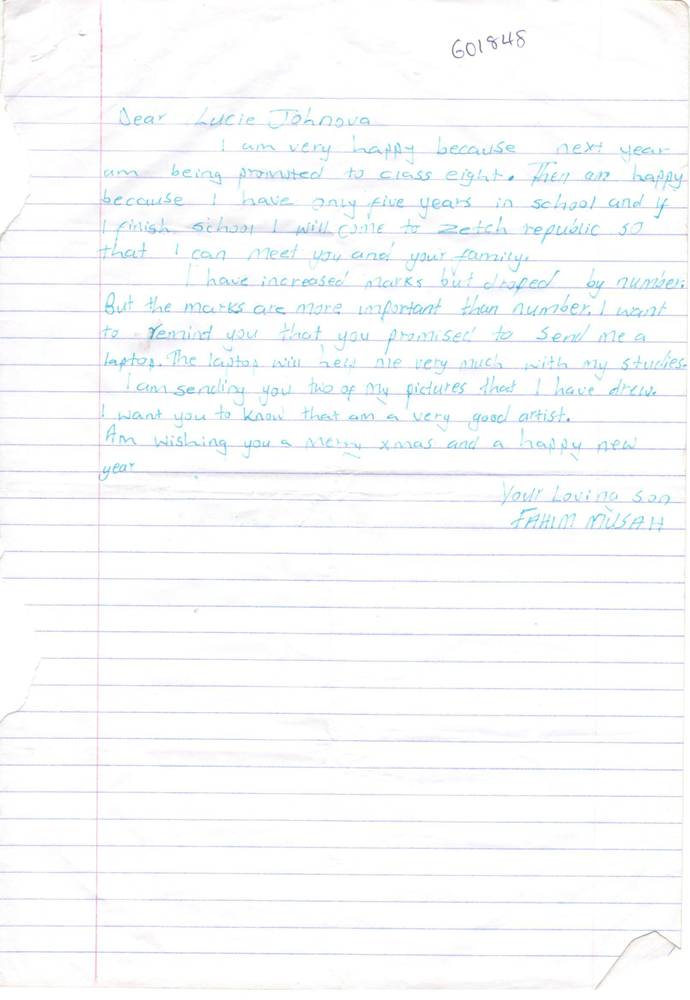 601848
Dear Lucie Johnova
I am very happy because next year
am being promuted to class eight. Then am happy
because I have only five years in school and if
I finish school I will come to Zetch republic so
that I can meet you and your family.
I have increased marks but droped by number.
But the marks are more important than number. I want
to remind you that you promised to send me a
laptop. The laptop will help me very much with my studies.
I am sending you two of my pictures that I have drew.
I want you to know that am a very good artist.
Am wishing you a merry xmas and a happy new
year
Your Loving son
FAHIM MUSAH